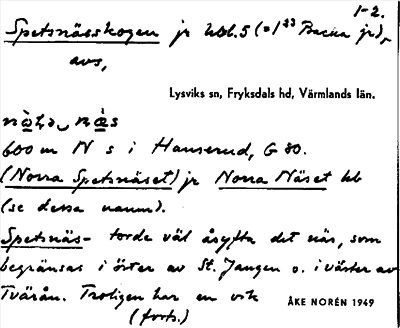 1-2.
Spetsnässkogen jr hbl.5 (=1²³ Backa jr),
avs,
Lysviks sn, Fryksdals hd, Värmlands län.
600 m N s i Hanserud, G 80.
(Norra Spetsnäset) jr Norra Näset bb
(se dessa namn).
Spetsnäs- torde väl åsyfta det näs, som
begränsas i öster av St. Jangen o. i väster av
Tvärån. Troligen har en vik
ÅKE NORÉN 1949
(forts.)